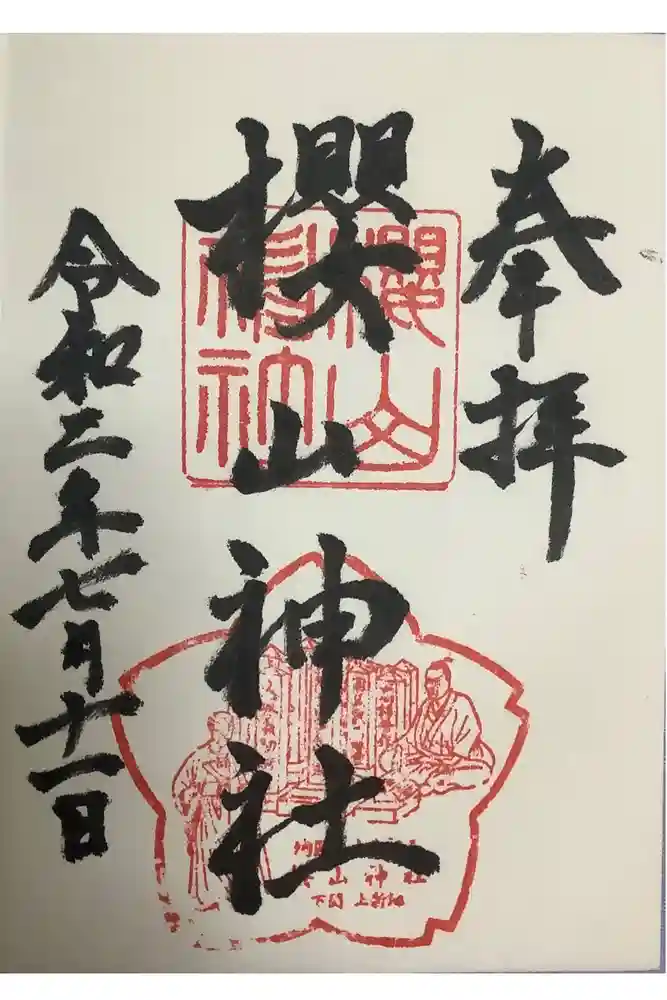 奉拝
櫻山神社
令和二年七月十一日
櫻山神社
山神社
下関 上新地